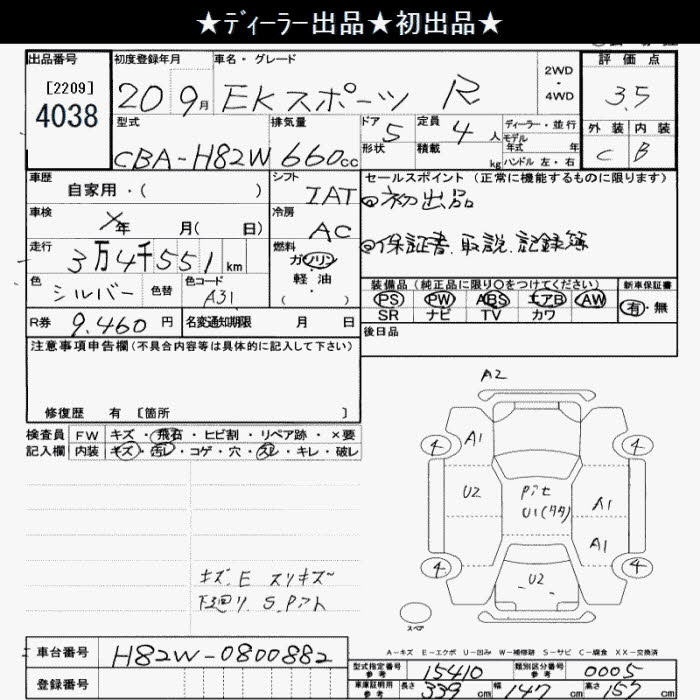 ★ディーラー出品★初出品★
出品番号
[2209]
4038
初度登録年月
20 9月
車名・グレード
EKスポーツ R
2WD
・
4WD
評価点
3.5
外装 内装
C B
型式
CBA-H82W
排気量
660cc
ドア 5
形状
定員 4人
積載 kg
ディーラー・並行
モデル
年式 年
ハンドル 左・右
車歴
自家用・( )
シフト
IAT
セールスポイント(正常に機能するものに限ります)
◎初出品
◎保証書、取説、記録簿
車検
年 月( 日)
冷房
AC
走行
3万4千551km
燃料
ガソリン
・
軽油
・
( )
色
シルバー
色替
色コード
A31
装備品(純正品に限り○をつけてください)
PS PW ABS エアB AW
SR ナビ TV カワ
新車保証書
有・無
R券
9.460円
名変通知期限 月 日
後日品
注意事項申告欄(不具合内容等は具体的に記入して下さい)
修復歴 有 [箇所 ]
検査員
記入欄
FW キズ・飛石・ヒビ割・リペア跡・×要
内装 キズ・汚レ・コゲ・穴・スレ・キレ・破レ
キズ、E スリキズ〜
下廻リ S、Pアト
A2
4 A1 4
U2 Pit A1
U1(タタ)
A1
4 U2 4
スペア
A-キズ E-エクボ U-凹み W-補修跡 S-サビ C-腐食 XX-交換済
車台番号
H82W-0800882
登録番号
型式指定番号
参考
15410
類別区分番号
参考
0005
車庫証明用
参考
長さ 339cm 幅 147cm 高さ 157cm